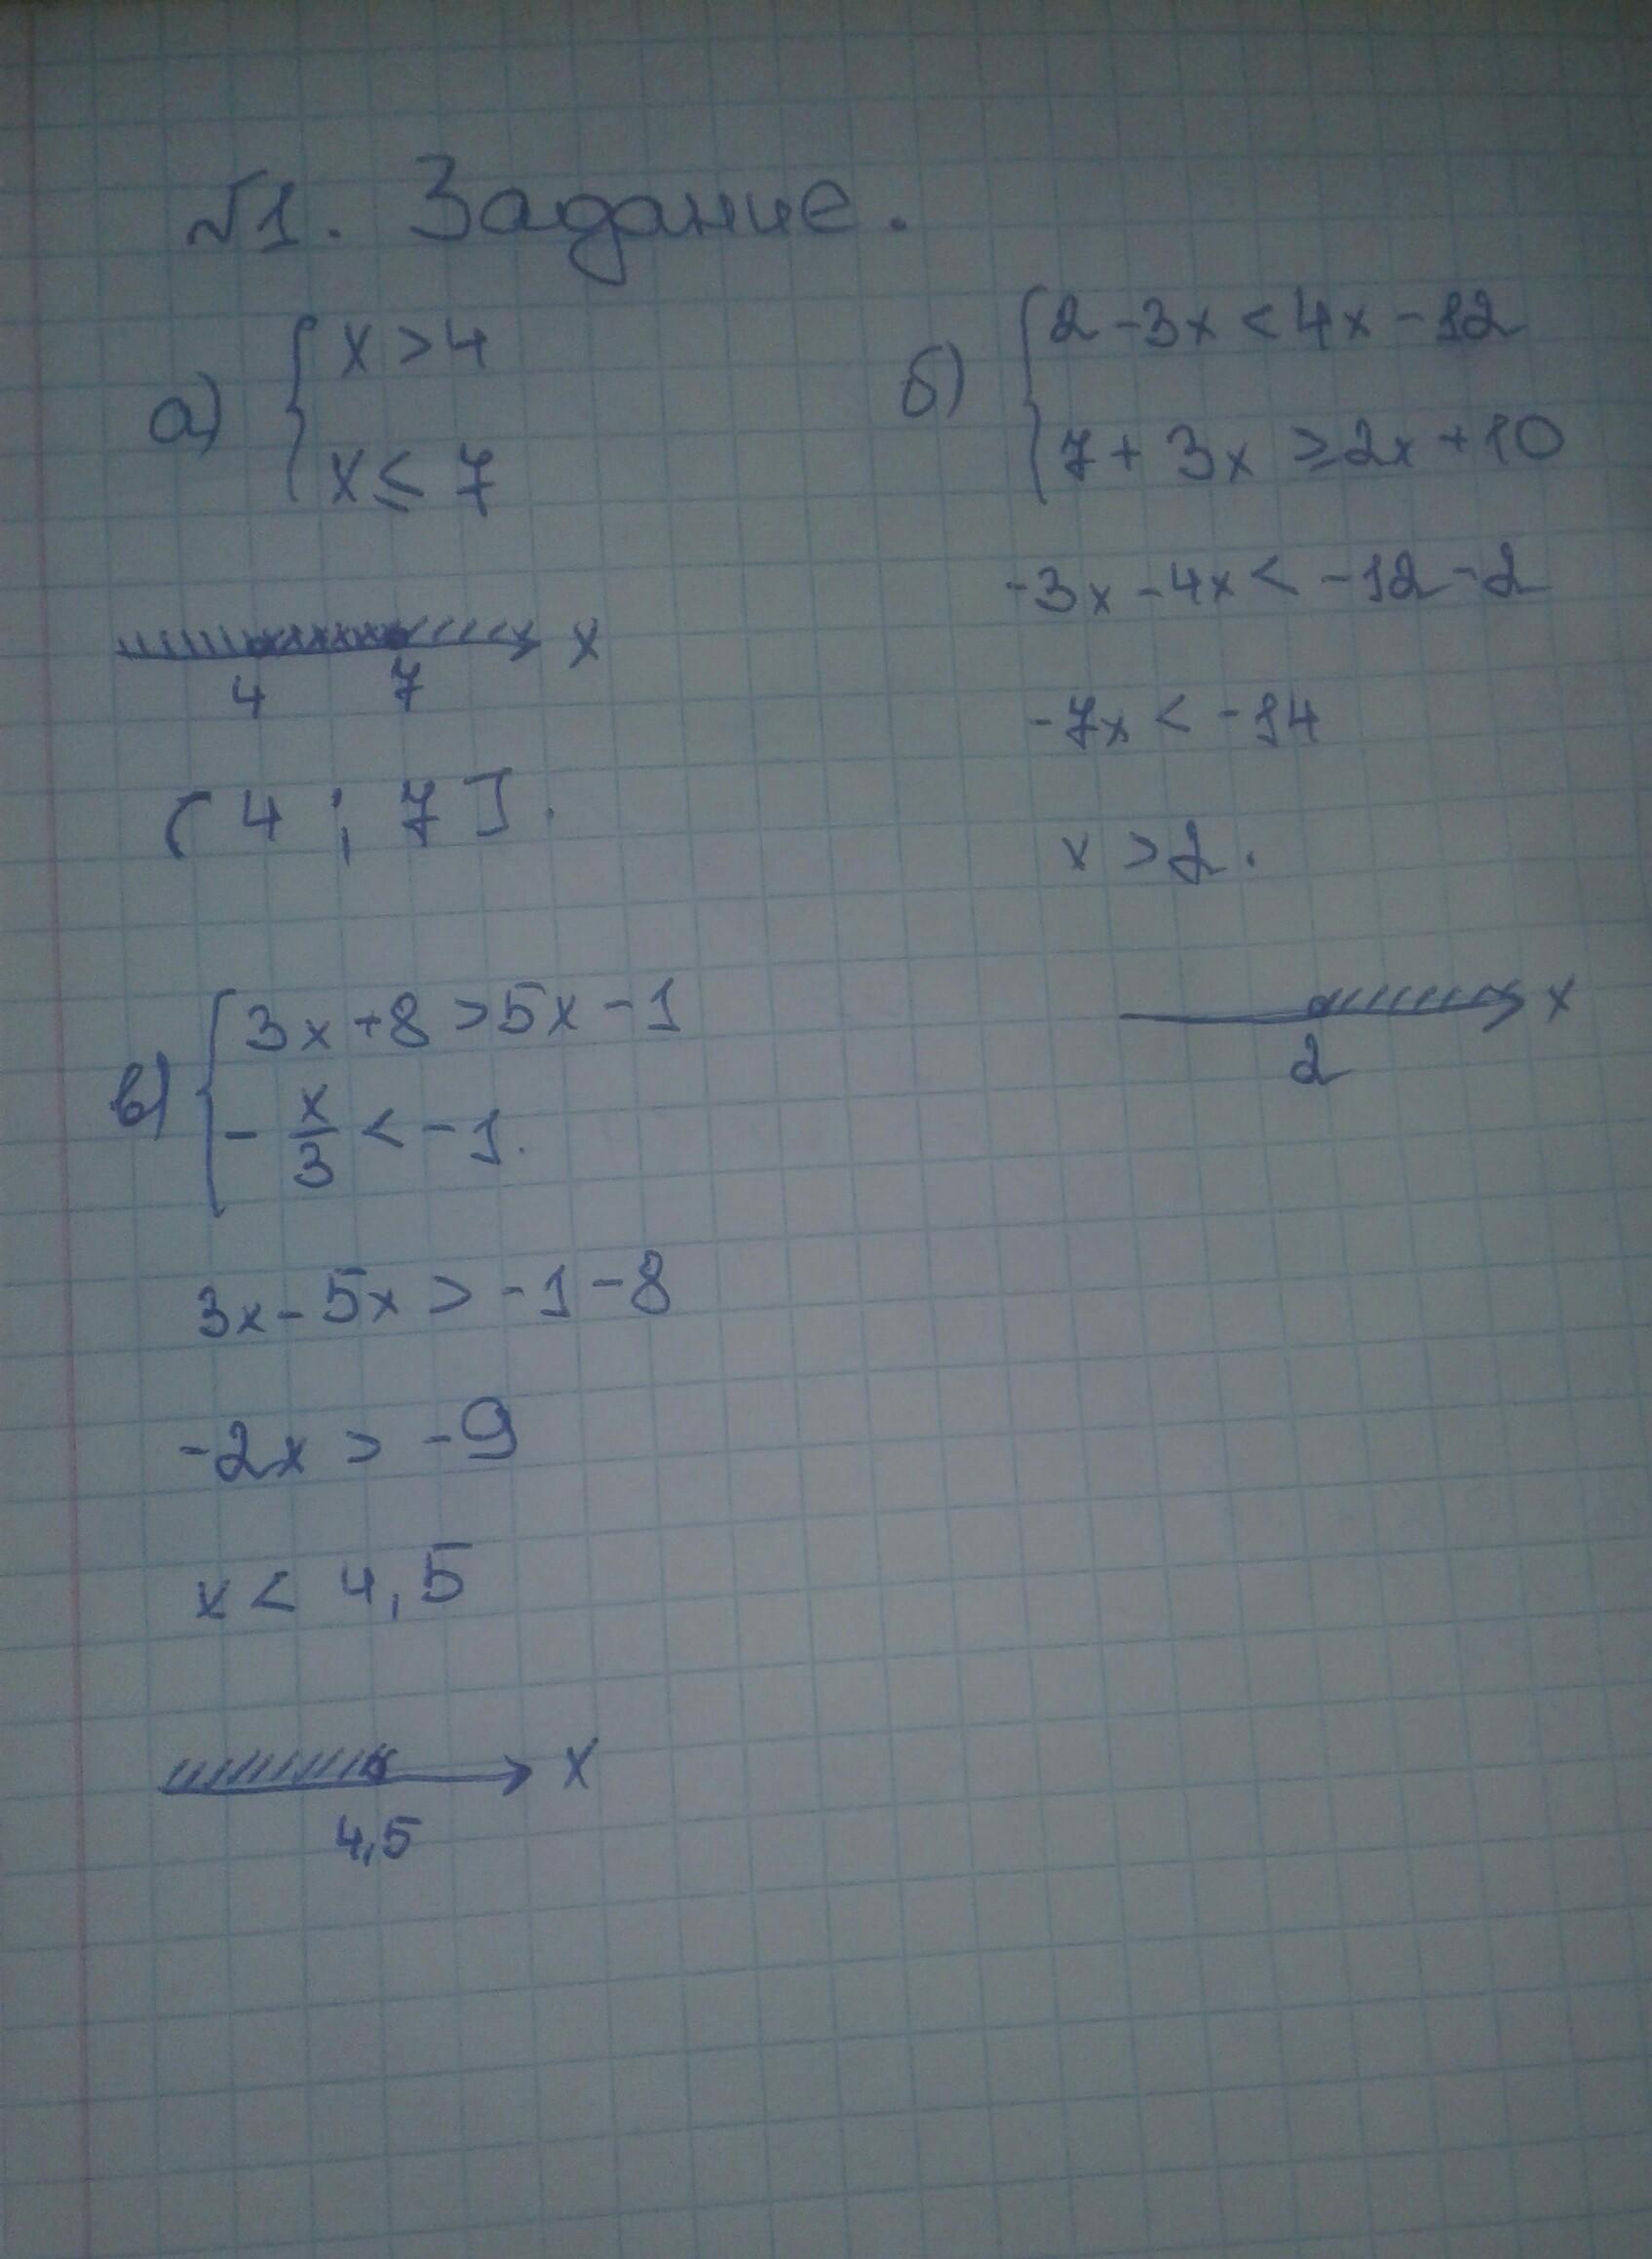 №1. Задание.
а) { x > 4
x ≤ 7
4 7 x
( 4 ; 7 ].
б) { 2 - 3x < 4x - 12
7 + 3x ≥ 2x + 10
-3x - 4x < -12 - 2
-7x < -14
x > 2.
2 x
в) { 3x + 8 > 5x - 1
- x/3 < -1.
3x - 5x > -1 - 8
-2x > -9
x < 4,5
4,5 x